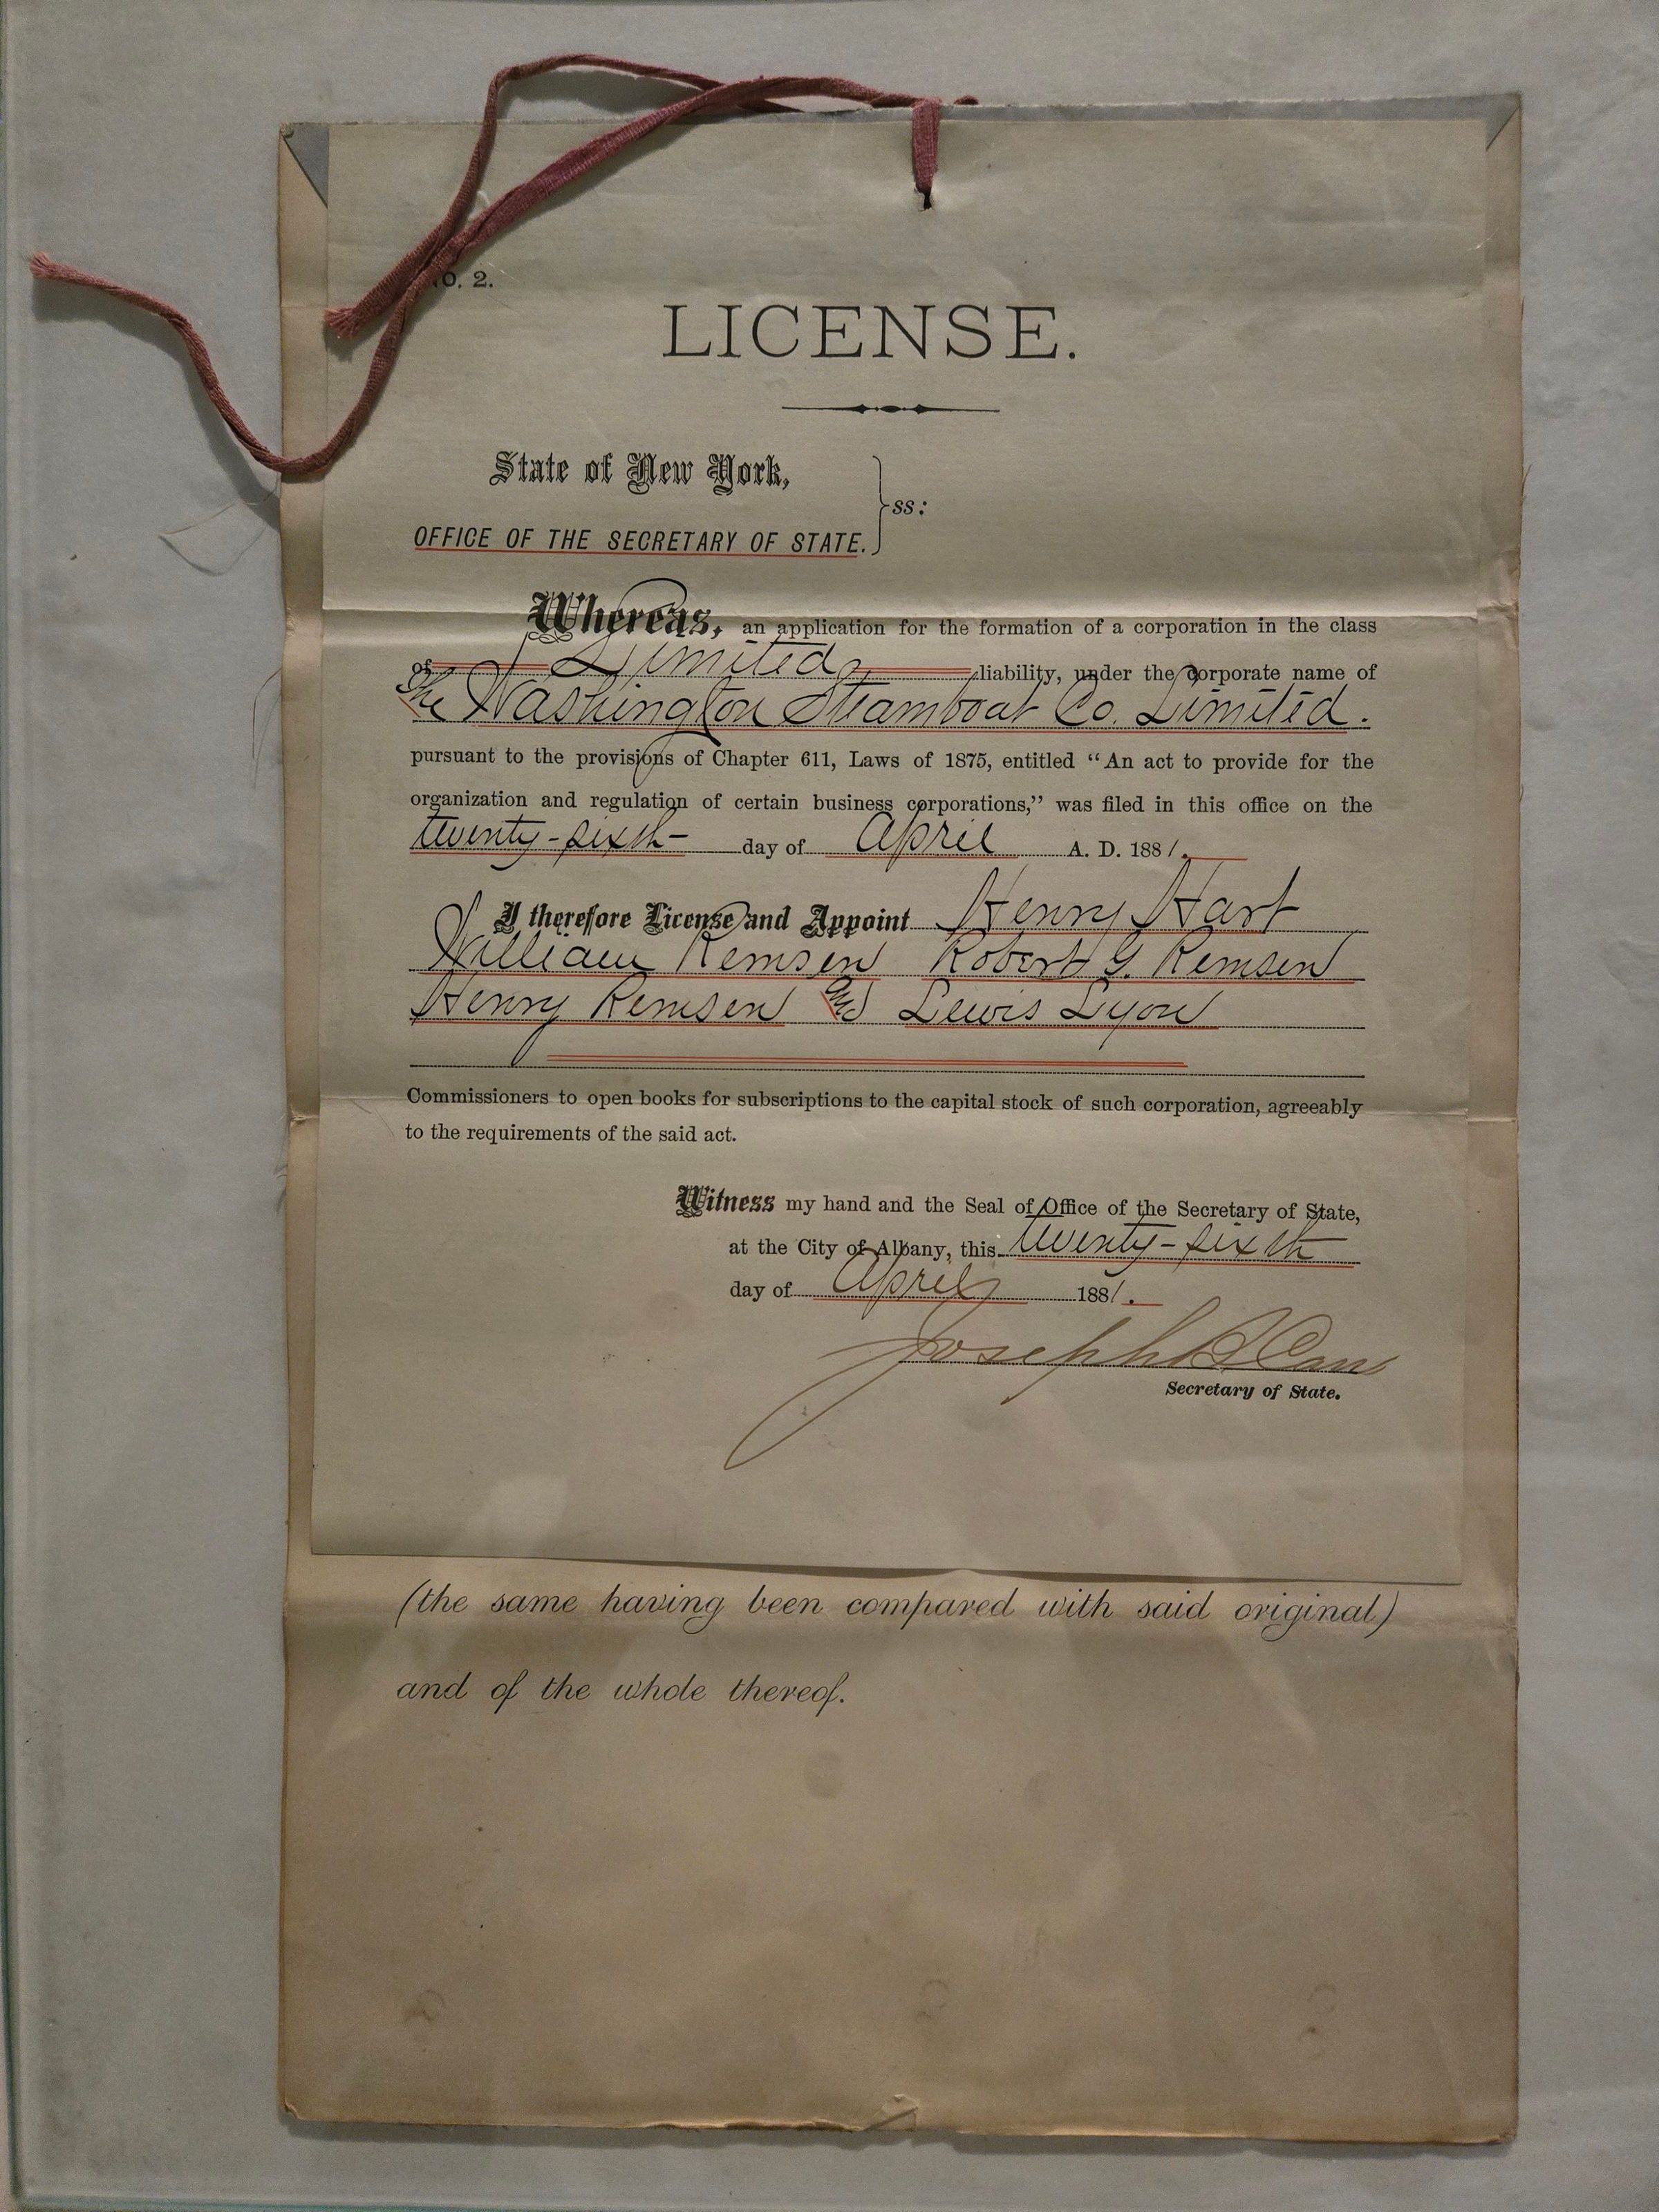 NO. 2.
LICENSE.
State of New York,
ss:
OFFICE OF THE SECRETARY OF STATE.
Whereas, an application for the formation of a corporation in the class
of Limited liability, under the corporate name of
The Washington Steamboat Co. Limited.
pursuant to the provisions of Chapter 611, Laws of 1875, entitled “An act to provide for the
organization and regulation of certain business corporations,” was filed in this office on the
twenty-sixth day of April A. D. 1881.
I therefore License and Appoint Henry Hart
William Remsen Robert G. Remsen
Henry Remsen and Lewis Lyon
Commissioners to open books for subscriptions to the capital stock of such corporation, agreeably
to the requirements of the said act.
Witness my hand and the Seal of Office of the Secretary of State,
at the City of Albany, this twenty-sixth
day of April 1881.
Joseph B Carr
Secretary of State.
(the same having been compared with said original)
and of the whole thereof.